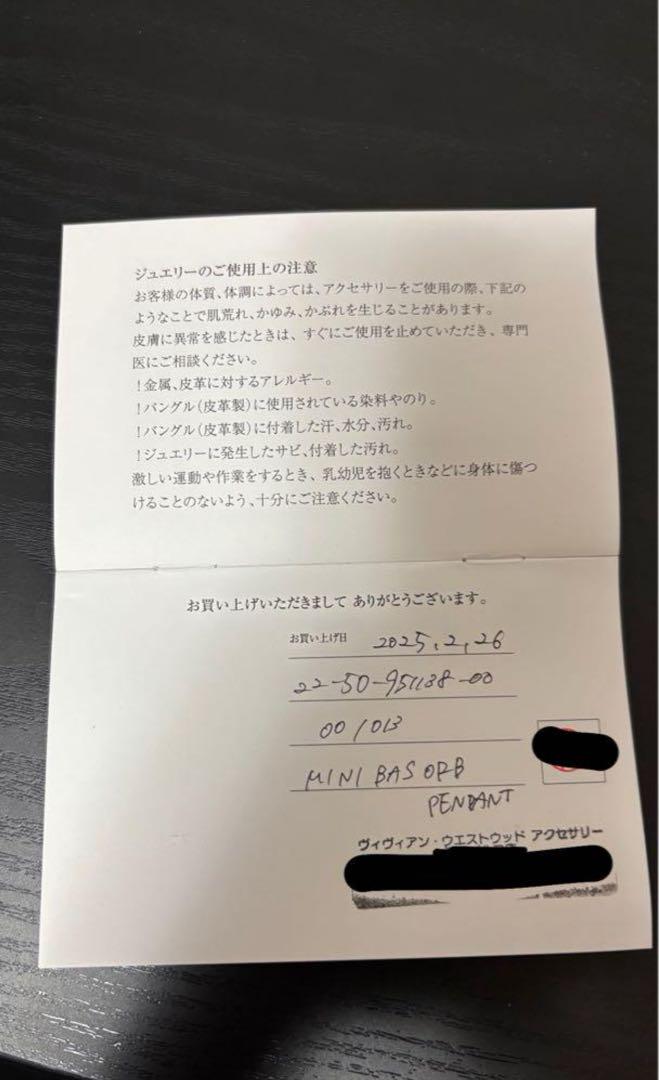 ジュエリーのご使用上の注意
お客様の体質、体調によっては、アクセサリーをご使用の際、下記の
ようなことで肌荒れ、かゆみ、かぶれを生じることがあります。
皮膚に異常を感じたときは、すぐにご使用を止めていただき、専門
医にご相談ください。
！金属、皮革に対するアレルギー。
！バングル（皮革製）に使用されている染料やのり。
！バングル（皮革製）に付着した汗、水分、汚れ。
！ジュエリーに発生したサビ、付着した汚れ。
激しい運動や作業をするとき、乳幼児を抱くときなどに身体に傷つ
けることのないよう、十分にご注意ください。
お買い上げいただきまして ありがとうございます。
お買い上げ日 2025,2,26
22-50-951138-00
001013
MINI BAS ORB
PENDANT
ヴィヴィアン・ウエストウッド アクセサリー